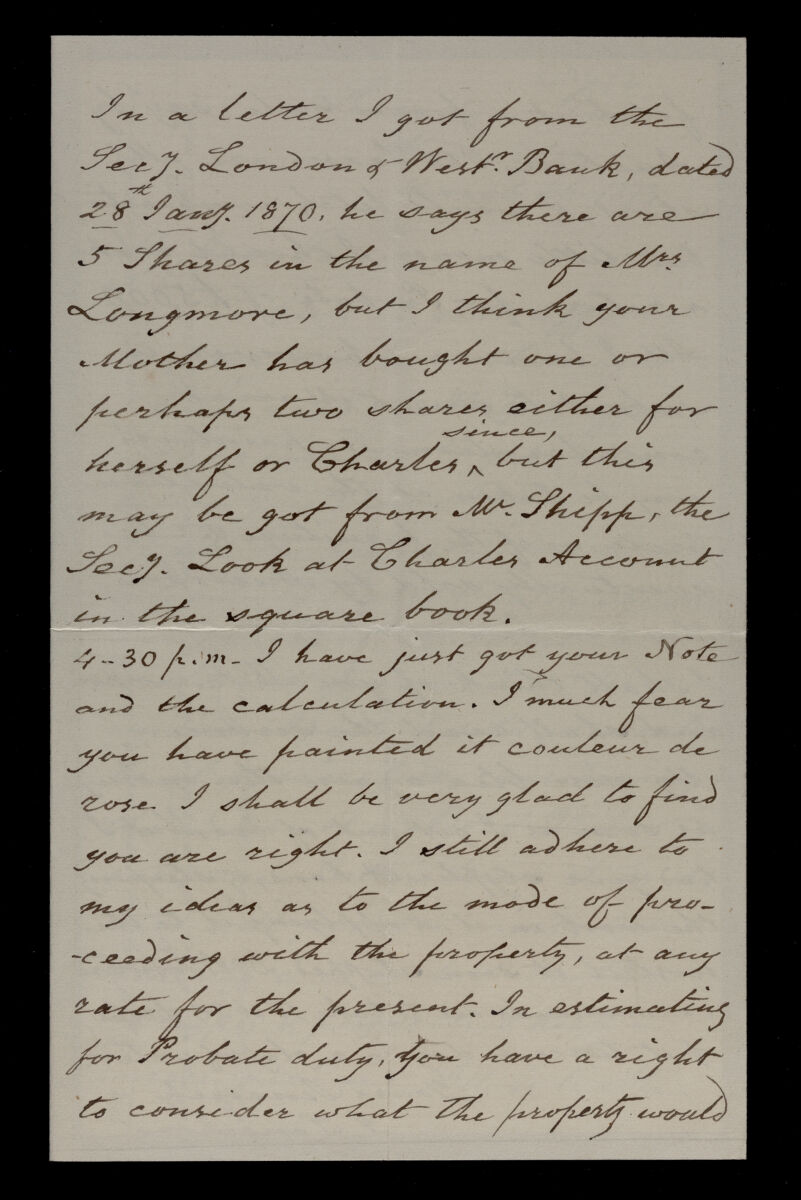 In a letter I got from the
Secy. London & Westr. Bank, dated
28th Jany. 1870, he says there are
5 Shares in the name of Mrs
Longmore, but I think your
Mother has bought one or
perhaps two shares either for
herself or Charles, ^ since, but this
may be got from Mr. Shipp, the
Secy. Look at Charles Account
in the square book.
4-30 p.m- I have just got your Note
and the calculation. I much fear
you have painted it couleur de
rose. I shall be very glad to find
you are right. I still adhere to
my ideas as to the mode of pro-
-ceeding with the property, at any
rate for the present. In estimating
for Probate duty, you have a right
to consider what the property would